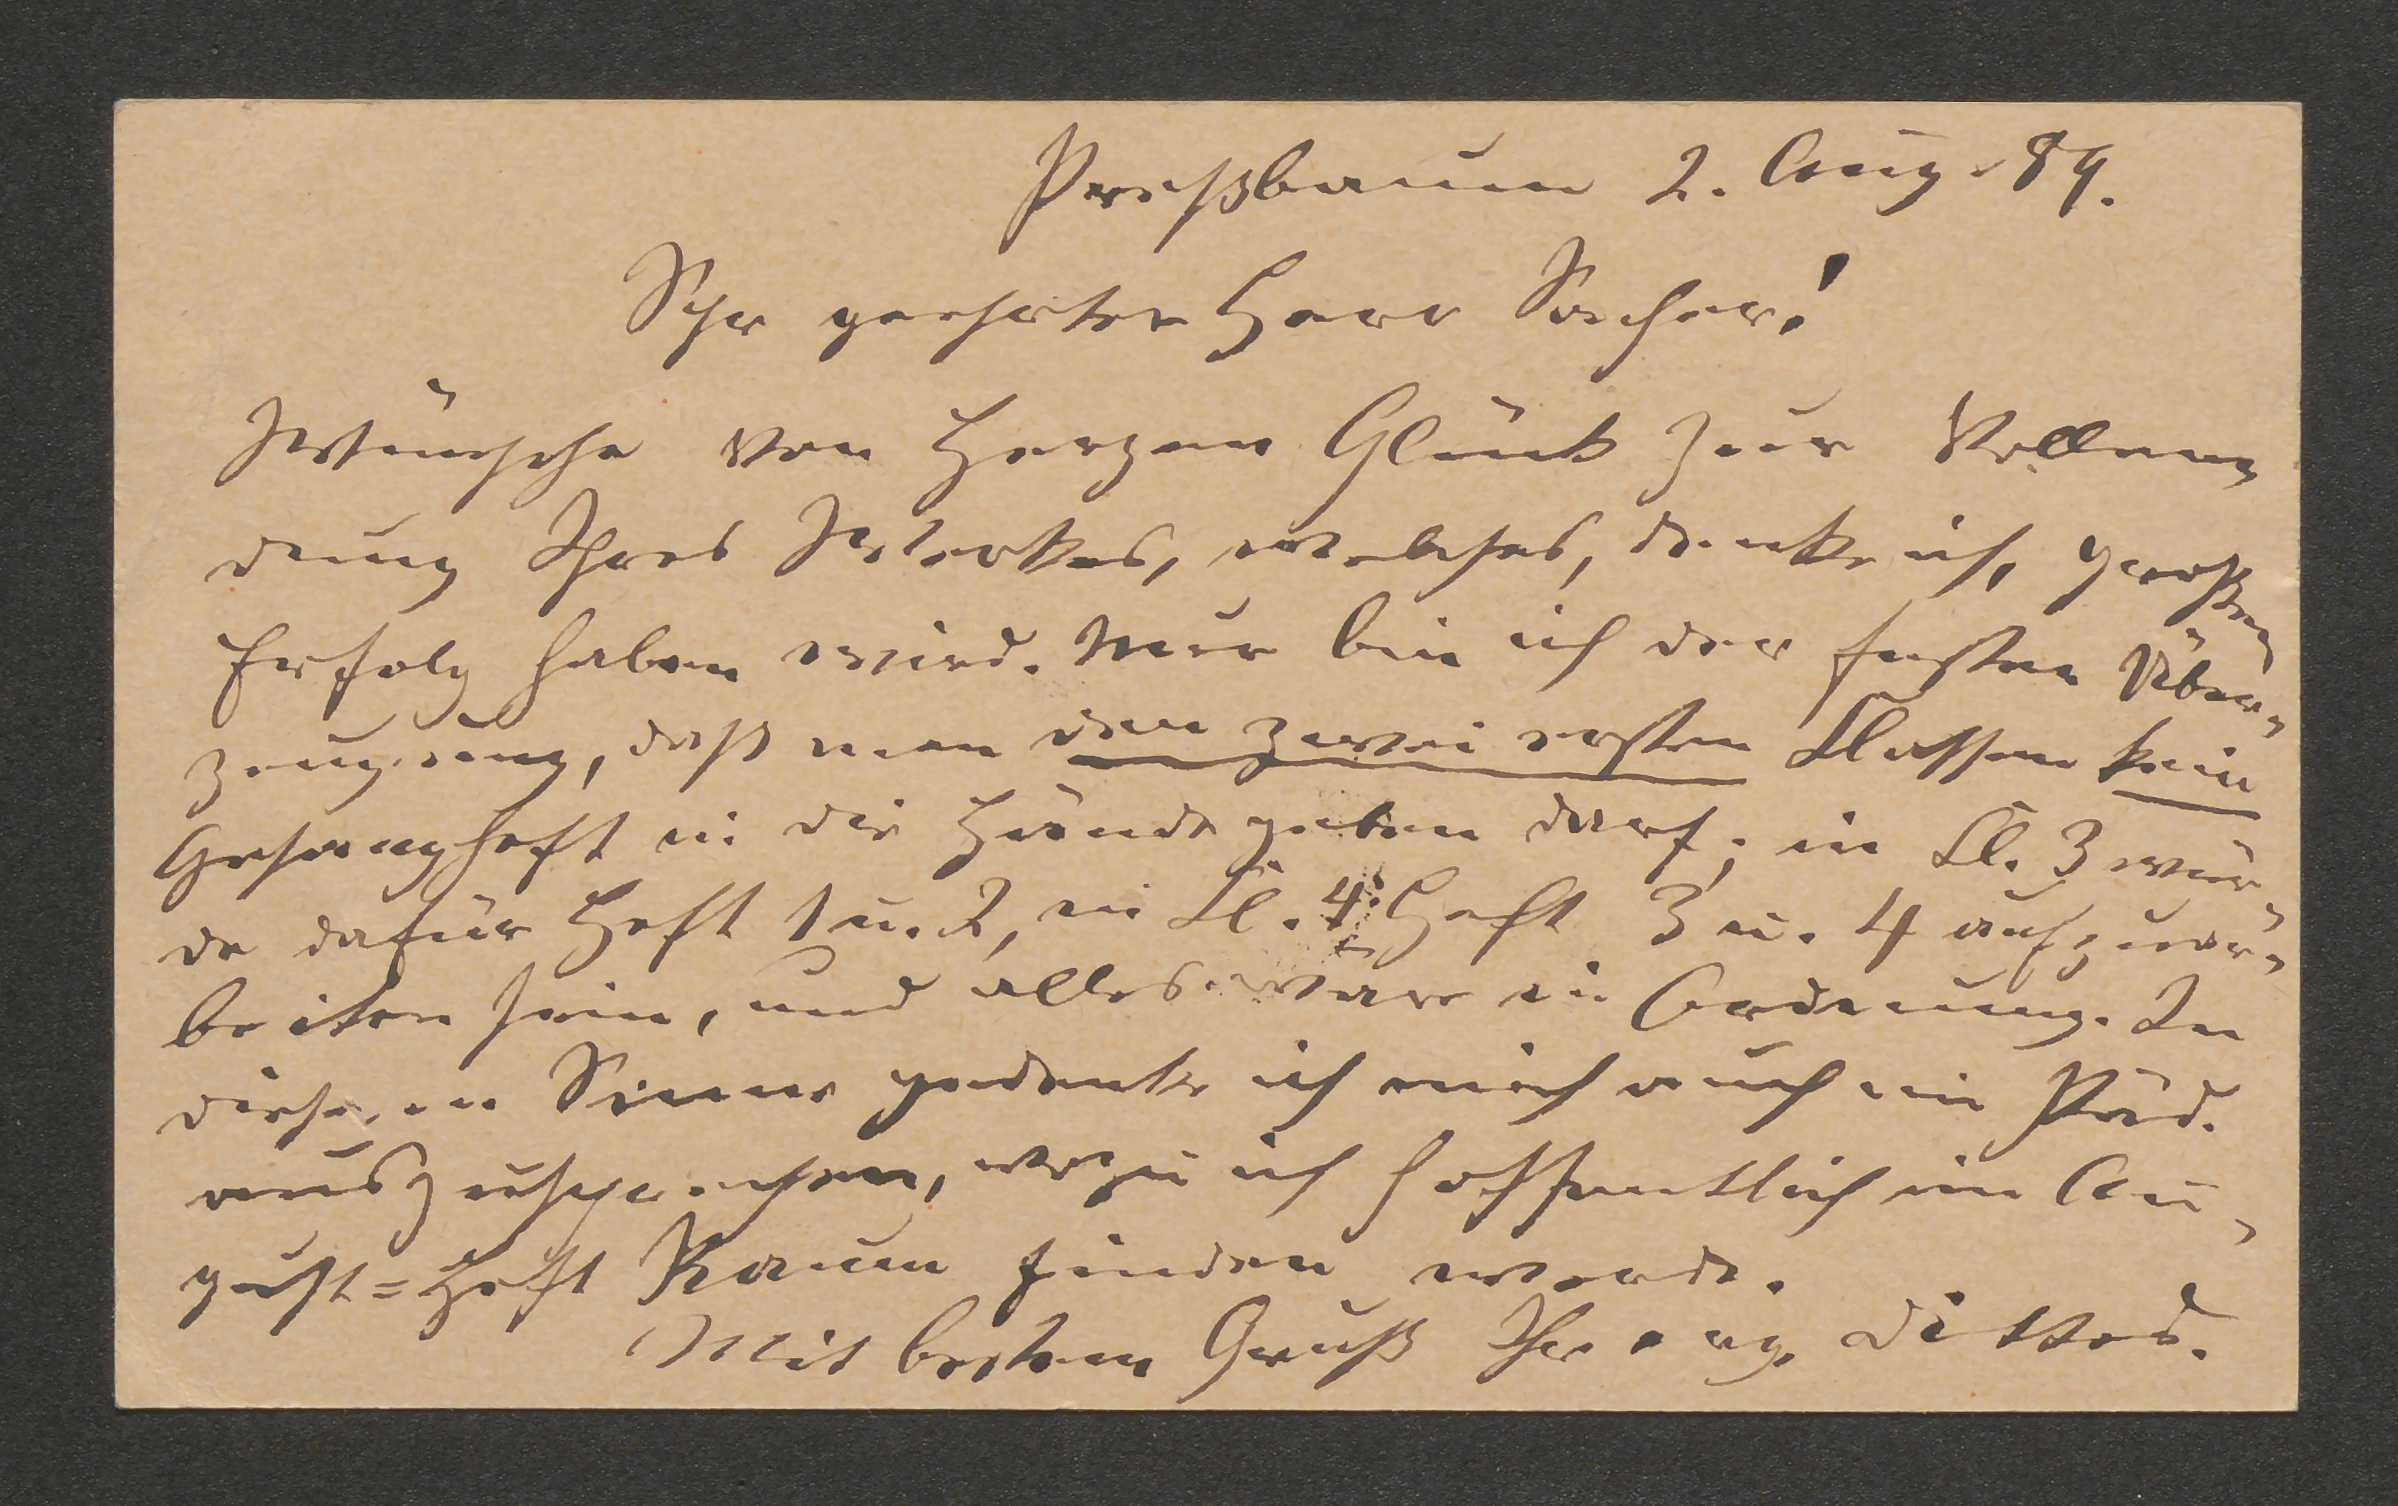 Preßbaum 2. Aug. 89.
Sehr geehrter Herr Sacher!
Wünsche von Herzen Glück zur Vollen-
dung Ihres Werkes, welches, denke ich, großen
Erfolg haben wird. Nur bin ich der festen Über-
zeugung, daß man den zwei ersten Classen kein
Gesangheft in die Hände geben darf; in Cl. 3 wür-
de dafür Heft 1 u. 2, in Cl. 4: Heft 3 u. 4 aufzuar-
beiten sein, und alles wäre in Ordnung. In
diesem Sinne gedenke ich mich auch im Päd.
auszusprechen, wozu ich hoffentlich im Au-
gust=Heft Raum finden werde.
Mit bestem Gruß Ihr erg. Dittes.